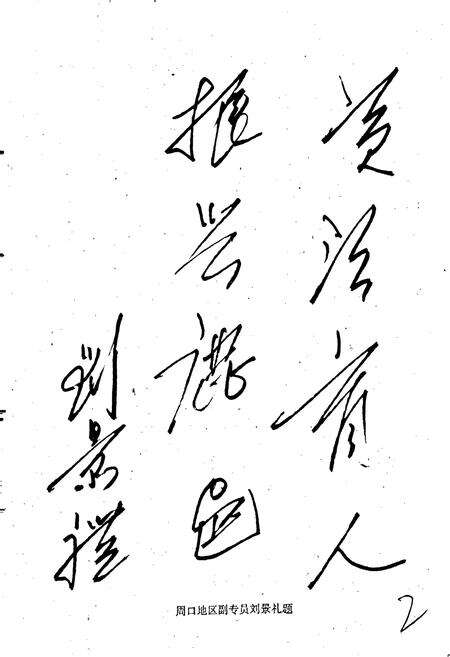 资治育人
振兴鹿邑
刘景禮
周口地区副专员刘景礼题
2